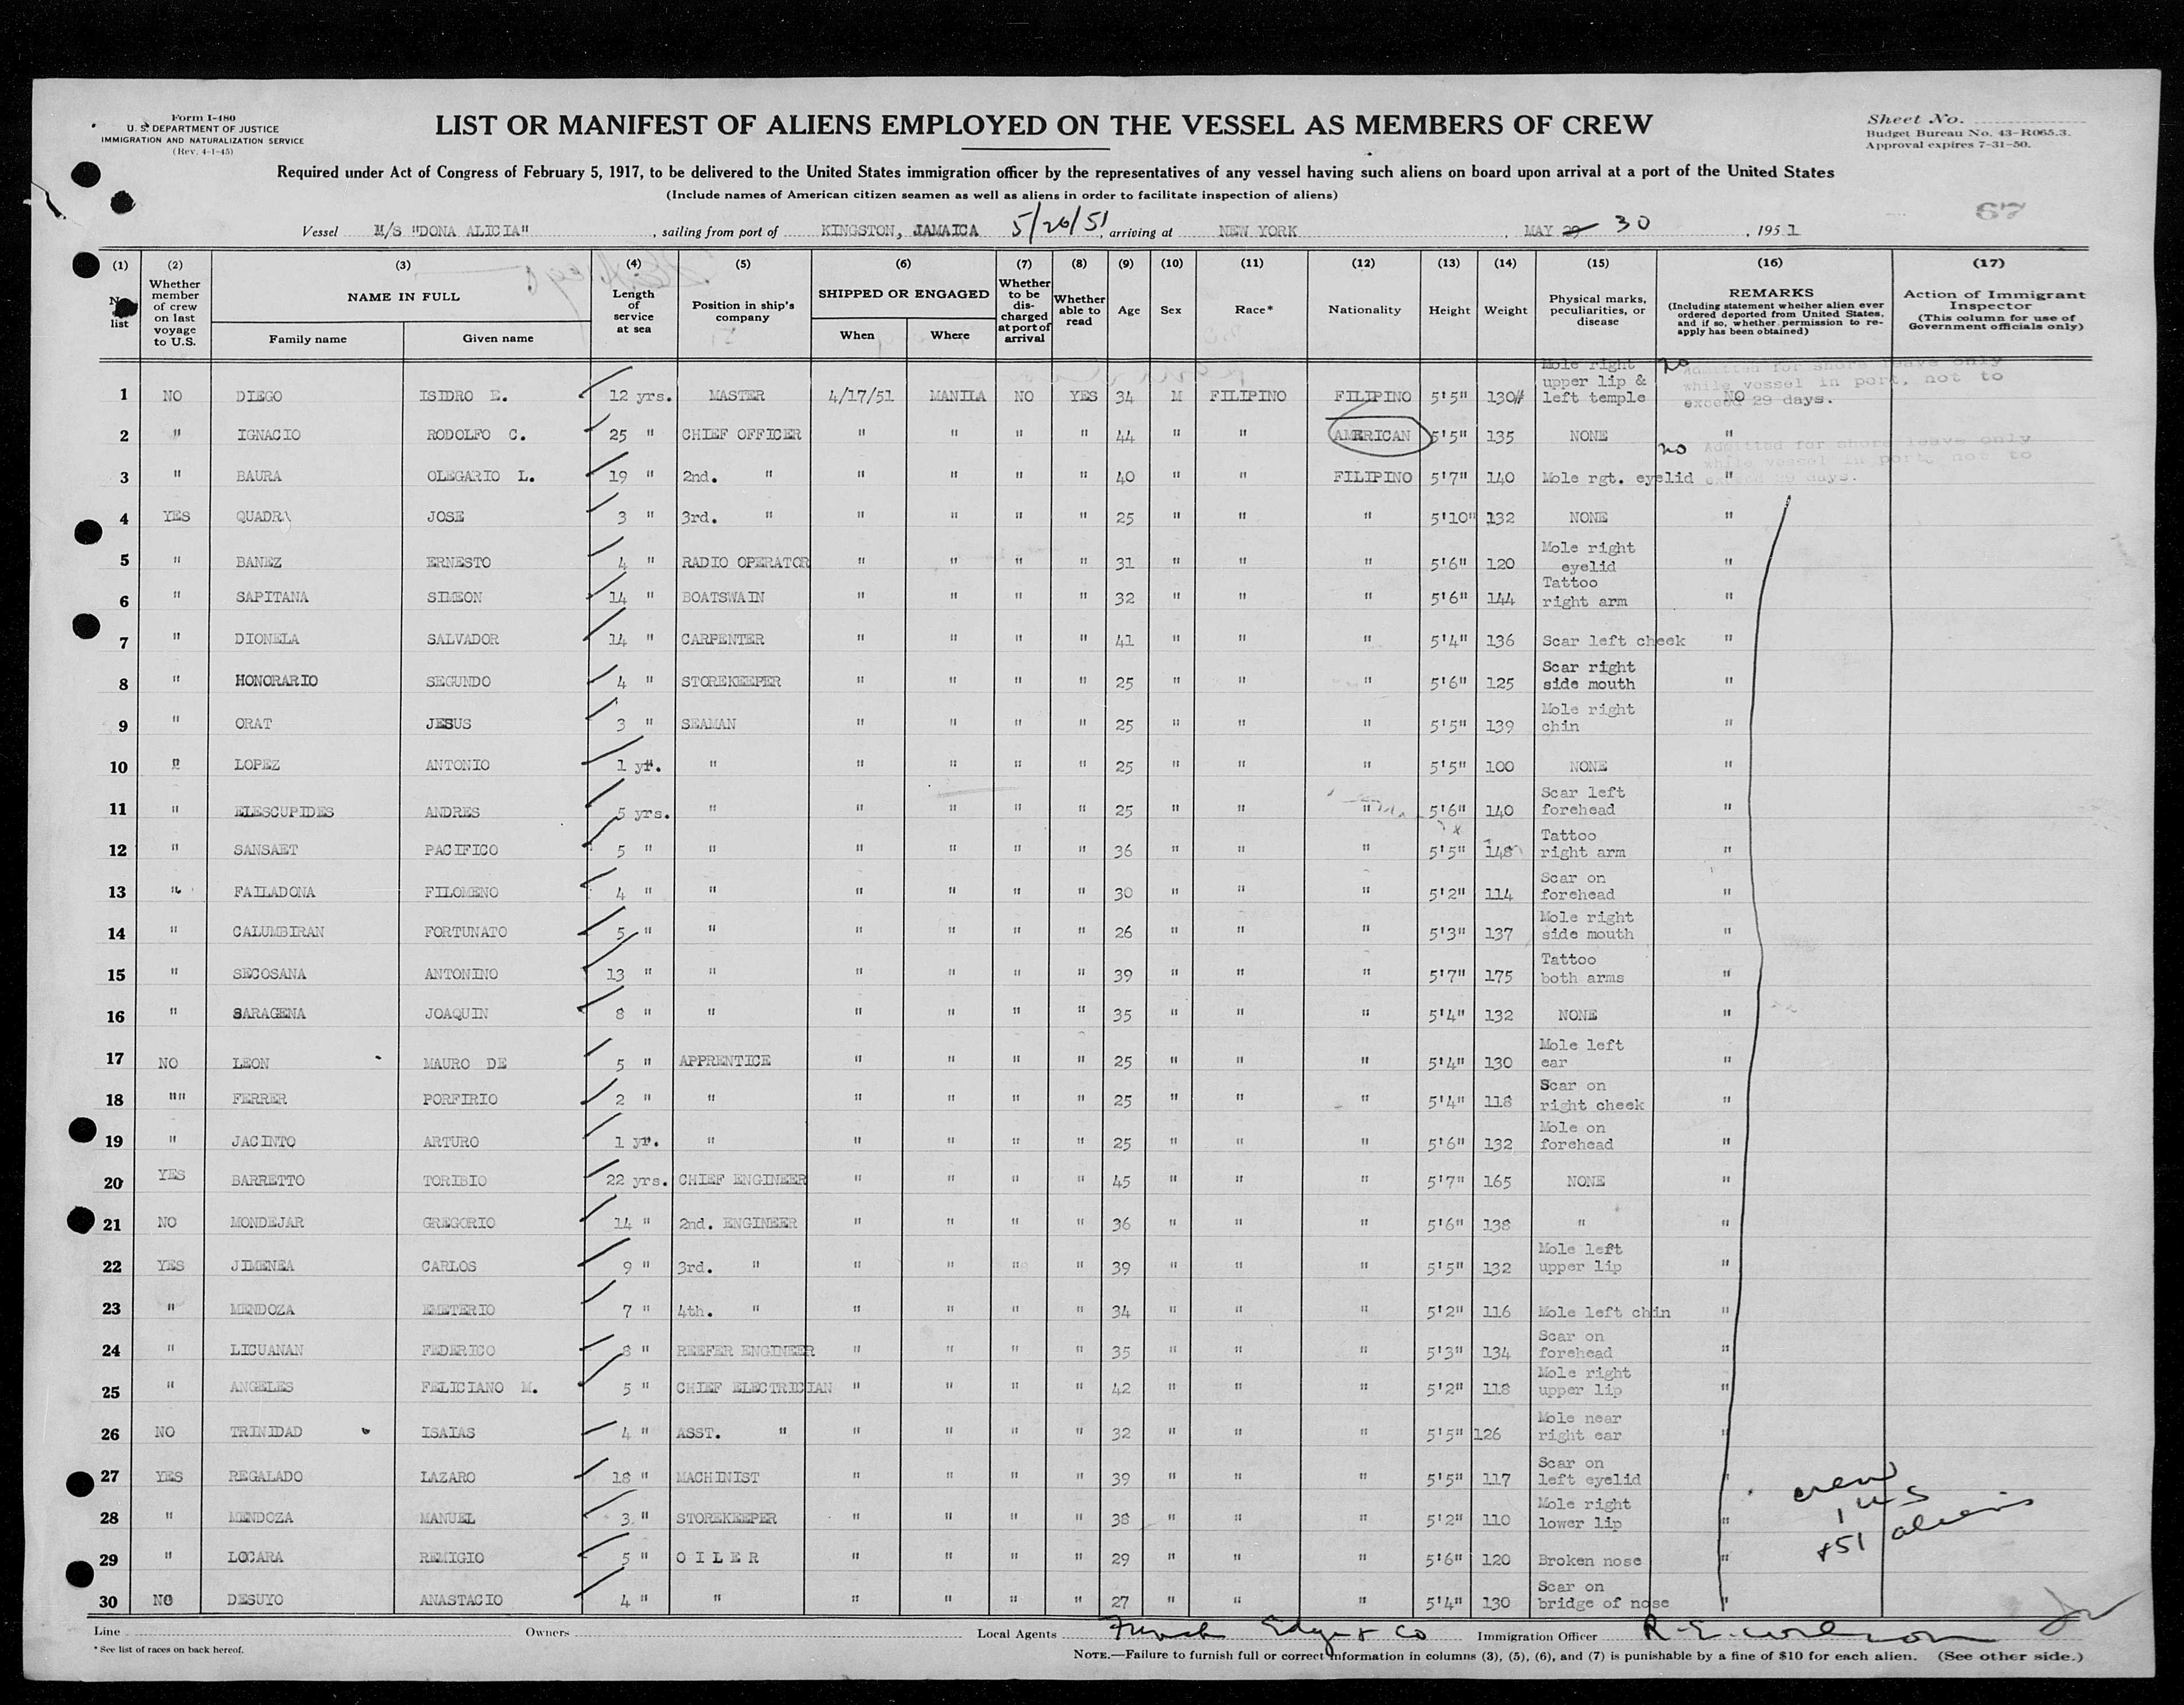 Form I-480
U. S. DEPARTMENT OF JUSTICE
IMMIGRATION AND NATURALIZATION SERVICE
(Rev. 4-1-45)
LIST OR MANIFEST OF ALIENS EMPLOYED ON THE VESSEL AS MEMBERS OF CREW
Sheet No.
Budget Bureau No. 43-R065.3.
Approval expires 7-31-50.
Required under Act of Congress of February 5, 1917, to be delivered to the United States immigration officer by the representatives of any vessel having such aliens on board upon arrival at a port of the United States
(Include names of American citizen seamen as well as aliens in order to facilitate inspection of aliens)
67
Vessel M/S "DONA ALICIA" , sailing from port of KINGSTON, JAMAICA 5/26/51, arriving at NEW YORK , MAY 29 30 , 1951
(1) (2) (3) (4) (5) (6) (7) (8) (9) (10) (11) (12) (13) (14) (15) (16) (17)
No. list
Whether member of crew on last voyage to U.S.
NAME IN FULL
Family name Given name
Length of service at sea
Position in ship's company
SHIPPED OR ENGAGED
When Where
Whether to be discharged at port of arrival
Whether able to read
Age Sex Race* Nationality Height Weight
Physical marks, peculiarities, or disease
REMARKS
(Including statement whether alien ever ordered deported from United States, and if so, whether permission to re-apply has been obtained)
Action of Immigrant Inspector
(This column for use of Government officials only)
no Admitted for shore leave only while vessel in port, not to exceed 29 days.
1 NO DIEGO ISIDRO E. 12 yrs. MASTER 4/17/51 MANILA NO YES 34 M FILIPINO FILIPINO 5'5" 130# Mole right upper lip & left temple NO
2 " IGNACIO RODOLFO C. 25 " CHIEF OFFICER " " " " 44 " " AMERICAN 5'5" 135 NONE "
no Admitted for shore leave only while vessel in port, not to exceed 29 days.
3 " BAURA OLEGARIO L. 19 " 2nd. " " " " " 40 " " FILIPINO 5'7" 140 Mole rgt. eyelid "
4 YES QUADRA JOSE 3 " 3rd. " " " " " 25 " " " 5'10" 132 NONE "
5 " BANEZ ERNESTO 4 " RADIO OPERATOR " " " " 31 " " " 5'6" 120 Mole right eyelid "
6 " SAPITANA SIMEON 14 " BOATSWAIN " " " " 32 " " " 5'6" 144 Tattoo right arm "
7 " DIONELA SALVADOR 14 " CARPENTER " " " " 41 " " " 5'4" 136 Scar left cheek "
8 " HONORARIO SEGUNDO 4 " STOREKEEPER " " " " 25 " " " 5'6" 125 Scar right side mouth "
9 " ORAT JESUS 3 " SEAMAN " " " " 25 " " " 5'5" 139 Mole right chin "
10 " LOPEZ ANTONIO 1 yr. " " " " " 25 " " " 5'5" 100 NONE "
11 " ELESCUPIDES ANDRES 5 yrs. " " " " " 25 " " " 5'6" 140 Scar left forehead "
12 " SANSAET PACIFICO 5 " " " " " " 36 " " " 5'5" 148 Tattoo right arm "
13 " FAILADONA FILOMENO 4 " " " " " " 30 " " " 5'2" 114 Scar on forehead "
14 " CALUMBIRAN FORTUNATO 5 " " " " " " 26 " " " 5'3" 137 Mole right side mouth "
15 " SECOSANA ANTONINO 13 " " " " " " 39 " " " 5'7" 175 Tattoo both arms "
16 " SARAGENA JOAQUIN 8 " " " " " " 35 " " " 5'4" 132 NONE "
17 NO LEON MAURO DE 5 " APPRENTICE " " " " 25 " " " 5'4" 130 Mole left ear "
18 "" FERRER PORFIRIO 2 " " " " " " 25 " " " 5'4" 118 Scar on right cheek "
19 " JACINTO ARTURO 1 yr. " " " " " 25 " " " 5'6" 132 Mole on forehead "
20 YES BARRETTO TORIBIO 22 yrs. CHIEF ENGINEER " " " " 45 " " " 5'7" 165 NONE "
21 NO MONDEJAR GREGORIO 14 " 2nd. ENGINEER " " " " 36 " " " 5'6" 138 " "
22 YES JIMENEA CARLOS 9 " 3rd. " " " " " 39 " " " 5'5" 132 Mole left upper lip "
23 " MENDOZA EMETERIO 7 " 4th. " " " " " 34 " " " 5'2" 116 Mole left chin "
24 " LICUANAN FEDERICO 8 " REEFER ENGINEER " " " " 35 " " " 5'3" 134 Scar on forehead "
25 " ANGELES FELICIANO M. 5 " CHIEF ELECTRICIAN " " " " 42 " " " 5'2" 118 Mole right upper lip "
26 NO TRINIDAD ISAIAS 4 " ASST. " " " " " 32 " " " 5'5" 126 Mole near right ear "
27 YES REGALADO LAZARO 18 " MACHINIST " " " " 39 " " " 5'5" 117 Scar on left eyelid "
28 " MENDOZA MANUEL 3 " STOREKEEPER " " " " 38 " " " 5'2" 110 Mole right lower lip "
29 " LOCARA REMIGIO 5 " OILER " " " " 29 " " " 5'6" 120 Broken nose "
30 NO DESUYO ANASTACIO 4 " " " " " " 27 " " " 5'4" 130 Scar on bridge of nose "
crew
1 US
+51 aliens
Line Owners Local Agents Edye & Co Immigration Officer R. E. Wilson
* See list of races on back hereof.
NOTE.—Failure to furnish full or correct information in columns (3), (5), (6), and (7) is punishable by a fine of $10 for each alien. (See other side.)